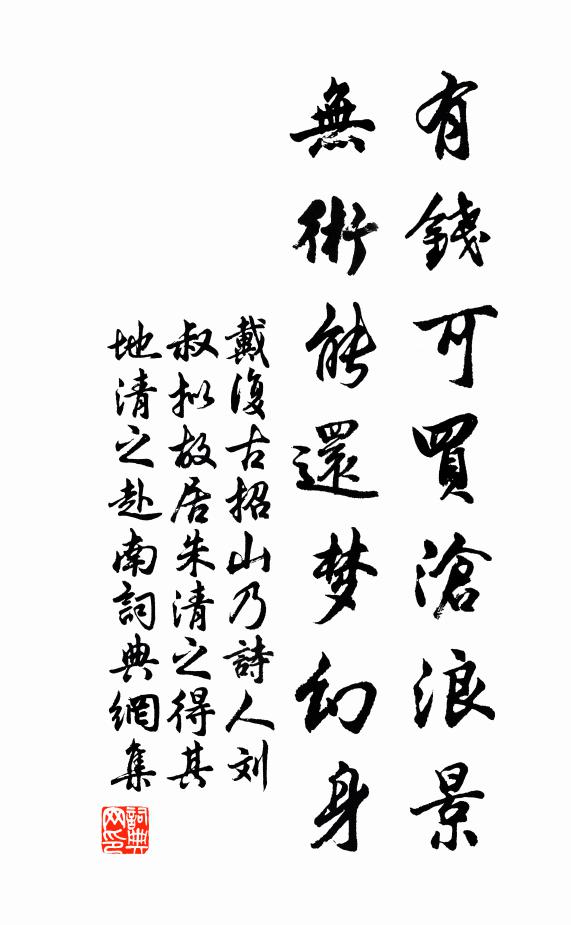 有錢可買滄浪景
無術能還梦幻身
戴復古招山乃詩人刘
叔拟故居朱清之得其
地清之赴南詞典網集
詞典网印